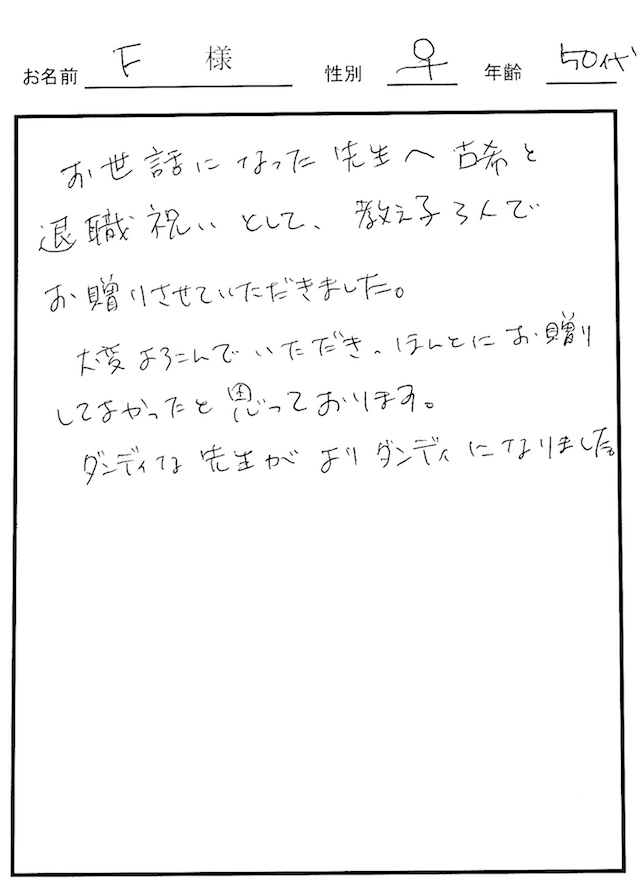 お名前 F 様 性別 ♀ 年齢 50代
お世話になった先生へ 古希と
退職祝いとして、教え子3人で
お贈りさせていただきました。
大変よろこんでいただき、ほんとにお贈り
してよかったと思っております。
ダンディな先生がよりダンディになりました。